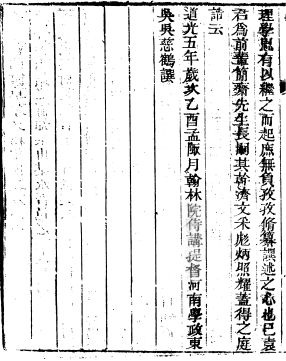 理學則有以繼之而起庶無負孜孜脩纂譔述之心也已袁
君為前輩簡齋先生長嗣其幹濟文采彪炳照耀蓋得之庭
諦云
道光五年歲次乙酉孟陬月翰林院侍講提督河南學政東
吳吳慈鶴譔